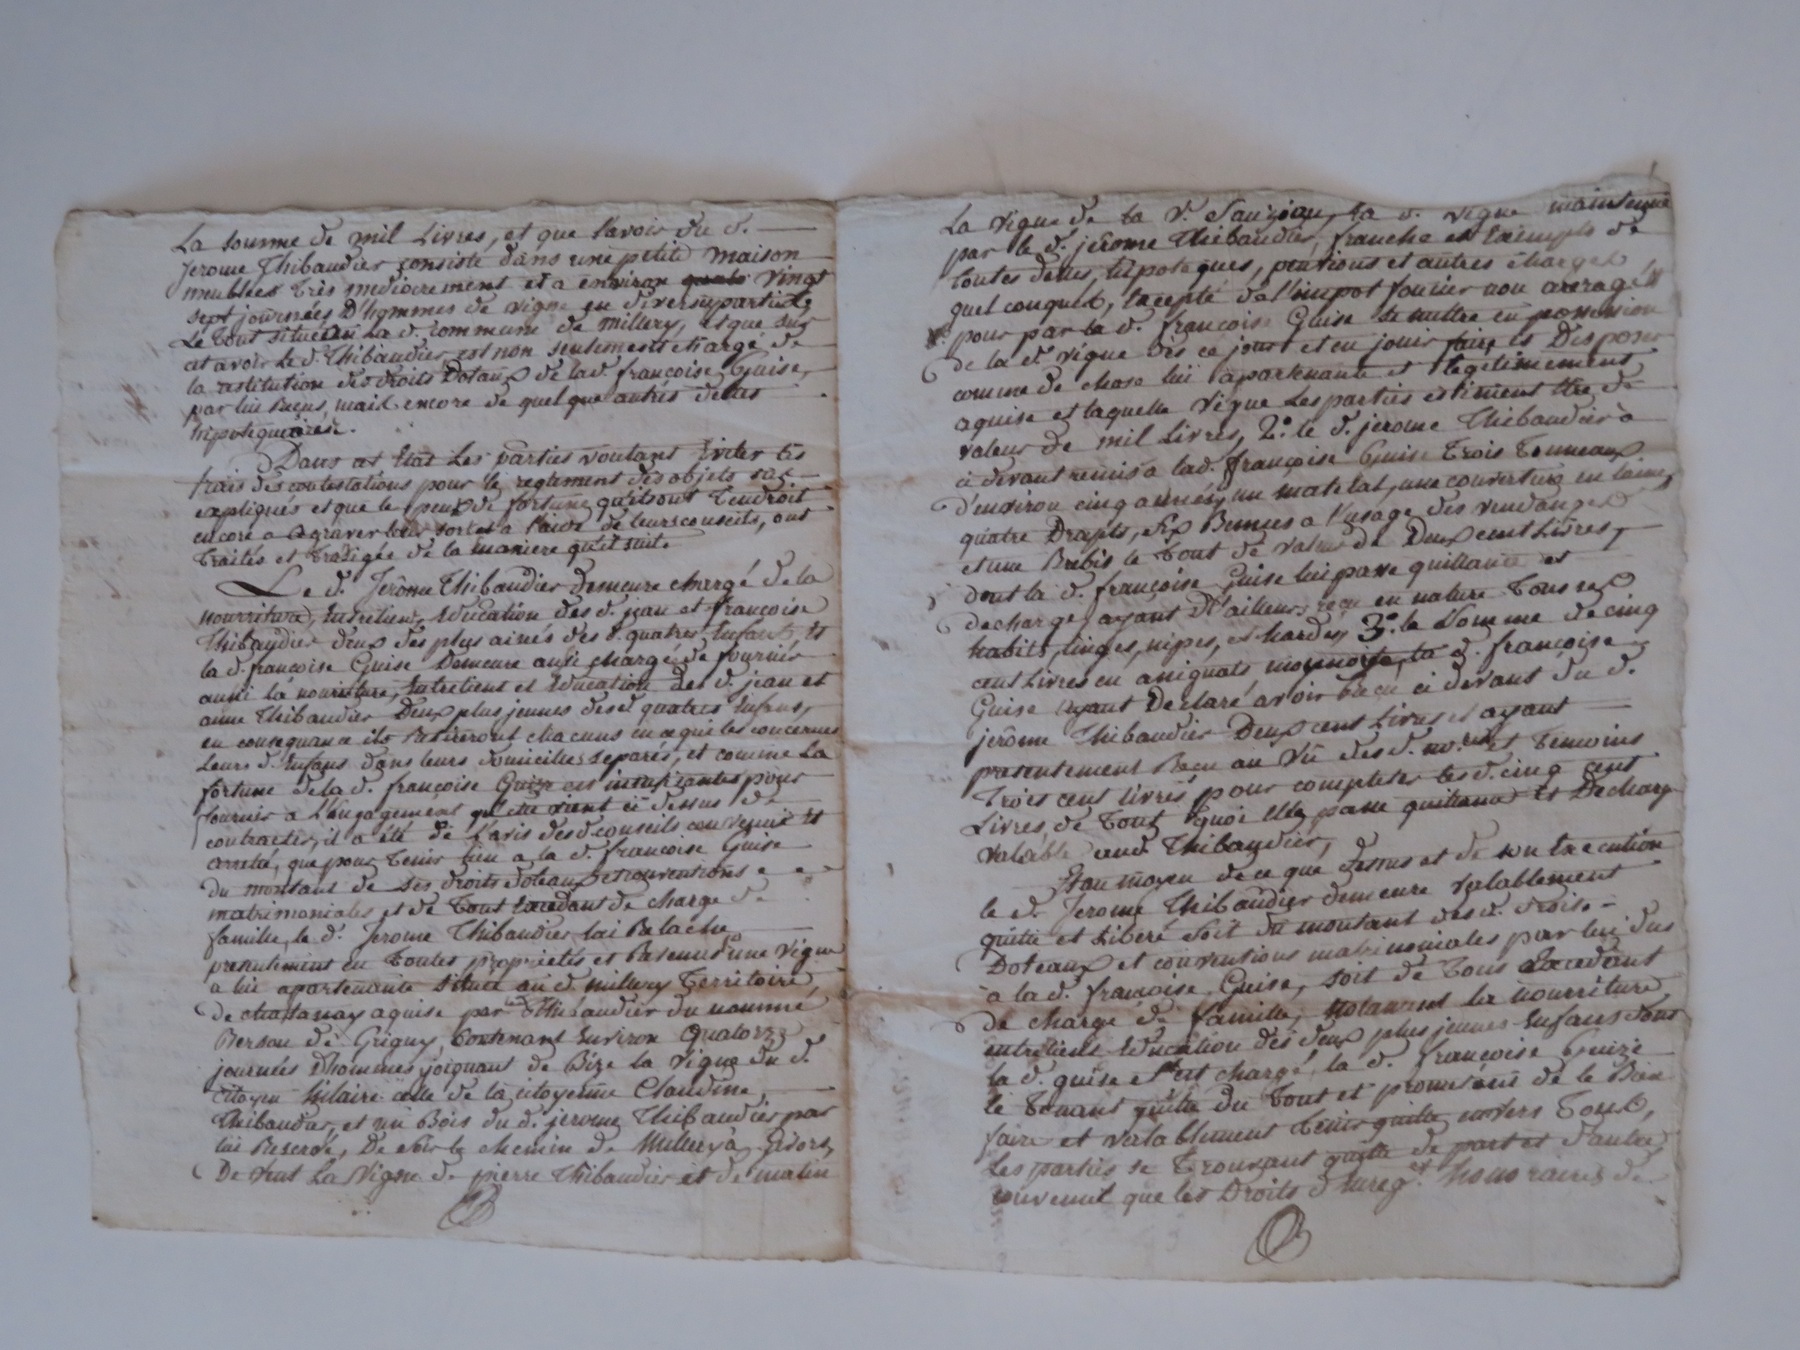 La somme de mil Livres, et que l'avoir du d.
Jerome Thibaudier consiste dans une petite maison
meublées très mediocrement et a environ quatre vingt
sept journées D'hommes de vigne en diverses parties
Le Tout situé en La d. commune de millery, et que sur
cet avoir le d. Thibaudier est non seulement chargé de
la restitution des droits Dotaux de lad. françoise Guise,
par lui Reçus, mais encore de quelque autres dettes
hipotequaires.
Dans cet Etat Les parties voulant Eviter les
frais des contestations pour le reglement des objets sus
expliqués et que le peux de fortune qu'ils ont Tendroit
encore a agraver leur sort et a l'aide de leurs conseils, ont
Traités et Tranzigée de la maniere qu'il suit.
Le d. Jerôme Thibaudier demeure chargé de la
nourriture, Entretien, Education des d. jean et françoise
Thibaudier deux des plus ainés des d. quatres Enfants, Et
la d. françoise Guise Demeure aussi chargé de fournir
aussi la nourriture, Entretient et Education des d. jean et
anne Thibaudier Deux plus jeunes des d. quatres Enfans,
en consequance ils Retireront chacuns en ce qui les concernes
Leurs d. Enfans dans leurs domicilles separés, et comme La
fortune de la d. françoise Guize est insufizantes pour
fournir a L'engagement qu'elle vient ci dessus de
contracter, il a été de l'avis des d. conseils convenus Et
arreté, que pour Tenir lieu a la d. francoise Guise
du montant de ses droits doteaux et conventions
matrimoniales et de Tout Excedant de charge de
famille, le d. Jerome Thibaudier lui Relache
presentement en Toutes propriétés et Revenus une Vigne
a lui apartenante située au d. millery Territoire
de chasanay aquise par led. Thibaudier du nommé
Bersau de Grigny, Contenant Environ Quatorze
journées D'hommes joignant de Bize la Vigne du d.
Citoyen hilaire celle de la citoyenne Claudine
Thibaudier, et un Bois du d. jerome Thibaudier par
lui Reservé, De soir le chemin de Millery à Givors,
De vent La Vigne de pierre Thibaudier et de matin
La vigne de la V. Sauzion, la d. vigne maintenue
par le d. jerôme Thibaudier, franche et Exempte de
Toutes dettes, hipoteques, pentions et autres charges
quelconques, Excepté de l'impot foncier non areragés
pour par la d. françoise Guise se mettre en possession
de la d. vigne dès ce jour et en jouir faire et Disposer
comme de chose lui apartenante et legitimement
aquise et laquelle Vigne Les parties estiment Etre de
valeur de mil Livres, 2.° le d. jerome Thibaudier a
ci devant remis a lad. françoise Guise Trois Tonneaux
d'environ cinq années, un matelat, une couverture en laine,
quatre Drapts, six Bennes a l'usage des vendanges
et une Brebis le Tout de valeur de Deux cent Livres,
dont la d. françoise Guise lui passe quittance et
decharge, ayant d'ailleurs reçu en nature Tous ses
habits, linges, nipes, et hardes, 3.° la Somme de cinq
cent Livres en assignats monnoye, la d. françoise
Guise ayant Declaré avoir Reçu ci devant du d.
jerôme Thibaudier Deux cent Livres et ayant
presentement Reçu au Vû des d. no.res et Temoins
Trois cent livres pour completter les d. cinq cent
Livres, de Tout quoi Elle passe quittance Et Decharge
valable aud. Thibaudier,
Et au moyen de ce que dessus et de son Execution
le d. Jerome Thibaudier demeure valablement
quitte et Liberé soit du montant des d. droits
Doteaux et conventions matrimoniales par lui dus
à la d. françoise Guise, soit de Tous Excedant
de charge de famille, Notament la nourriture,
entretient Education des deux plus jeunes Enfans dont
la d. guise est chargé, la d. françoise Guize
le Tenant quitte du Tout et promettant de le Bien
faire et valablement Tenir quitte envers Tous,
Les parties se Trouvant quitte de part et d'autre
convenut que les Droits d'Enreg.t et honoraires de